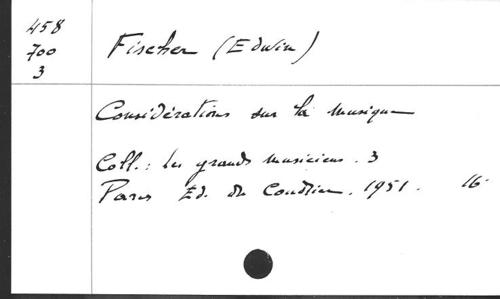 458
700
3
Fischer (Edwin)
Considérations sur la musique
Coll.: les grands musiciens. 3
Paris Ed. du Coudrier. 1951. 16